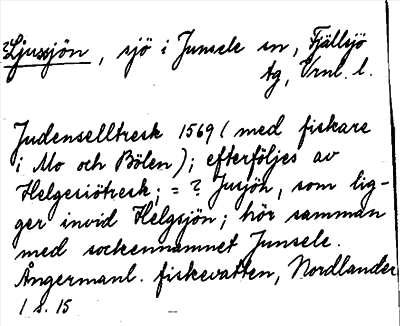 ?Ljussjön, sjö i Junsele sn, Fjällsjö
tg, Vrnl. l.
Judenselltresk 1569 (med fiskare
i Mo och Bölen); efterföljes av
Helgesiötresk; = ? Jusjön, som lig-
ger invid Helgsjön; hör samman
med sockennamnet Junsele.
Ångermanl. fiskevatten, Nordlander
1 s. 15